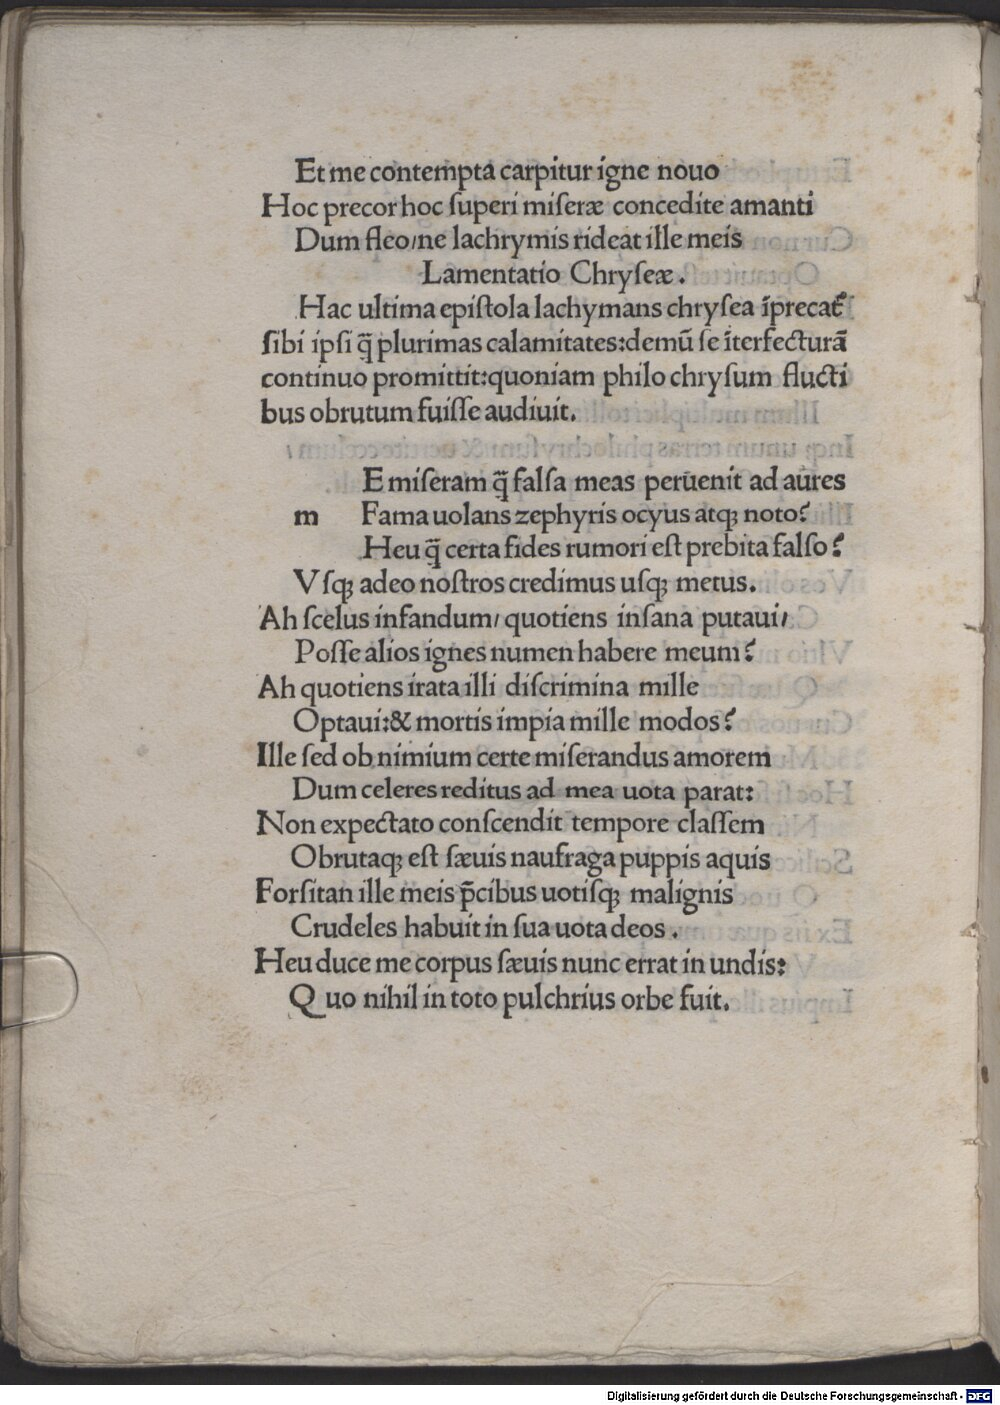 Et me contempta carpitur igne nouo
Hoc precor hoc ſuperi miſeræ concedite amanti
Dum fleo/ne lachrymis rideat ille meis
Lamentatio Chryſeæ.
Hac ultima epiſtola lachymans chryſea ĩprecat᷑
ſibi ipſi q̃ plurimas calamitates:demũ ſe ĩterfecturã
continuo promittit:quoniam philo chryſum flucti
bus obrutum fuiſſe audiuit.
E miſeram q̃ falſa meas peruenit ad aures
m Fama uolans zephyris ocyus atqꝫ noto?
Heu q̃ certa fides rumori eſt prebita falſo?
Vſqꝫ adeo noſtros credimus uſqꝫ metus.
Ah ſcelus infandum/ quotiens inſana putaui/
Poſſe alios ignes numen habere meum?
Ah quotiens irata illi diſcrimina mille
Optaui:& mortis impia mille modos?
Ille ſed ob nimium certe miſerandus amorem
Dum celeres reditus ad mea uota parat:
Non expectato conſcendit tempore claſſem
Obrutaqꝫ eſt ſæuis naufraga puppis aquis
Forſitan ille meis p̃cibus uotiſqꝫ malignis
Crudeles habuit in ſua uota deos.
Heu duce me corpus ſæuis nunc errat in undis:
Quo nihil in toto pulchrius orbe fuit.
Digitalisierung gefördert durch die Deutsche Forschungsgemeinschaft - DFG